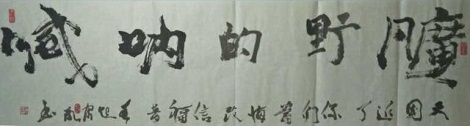 曠野的呐喊
天國近了你们當悔改信福音